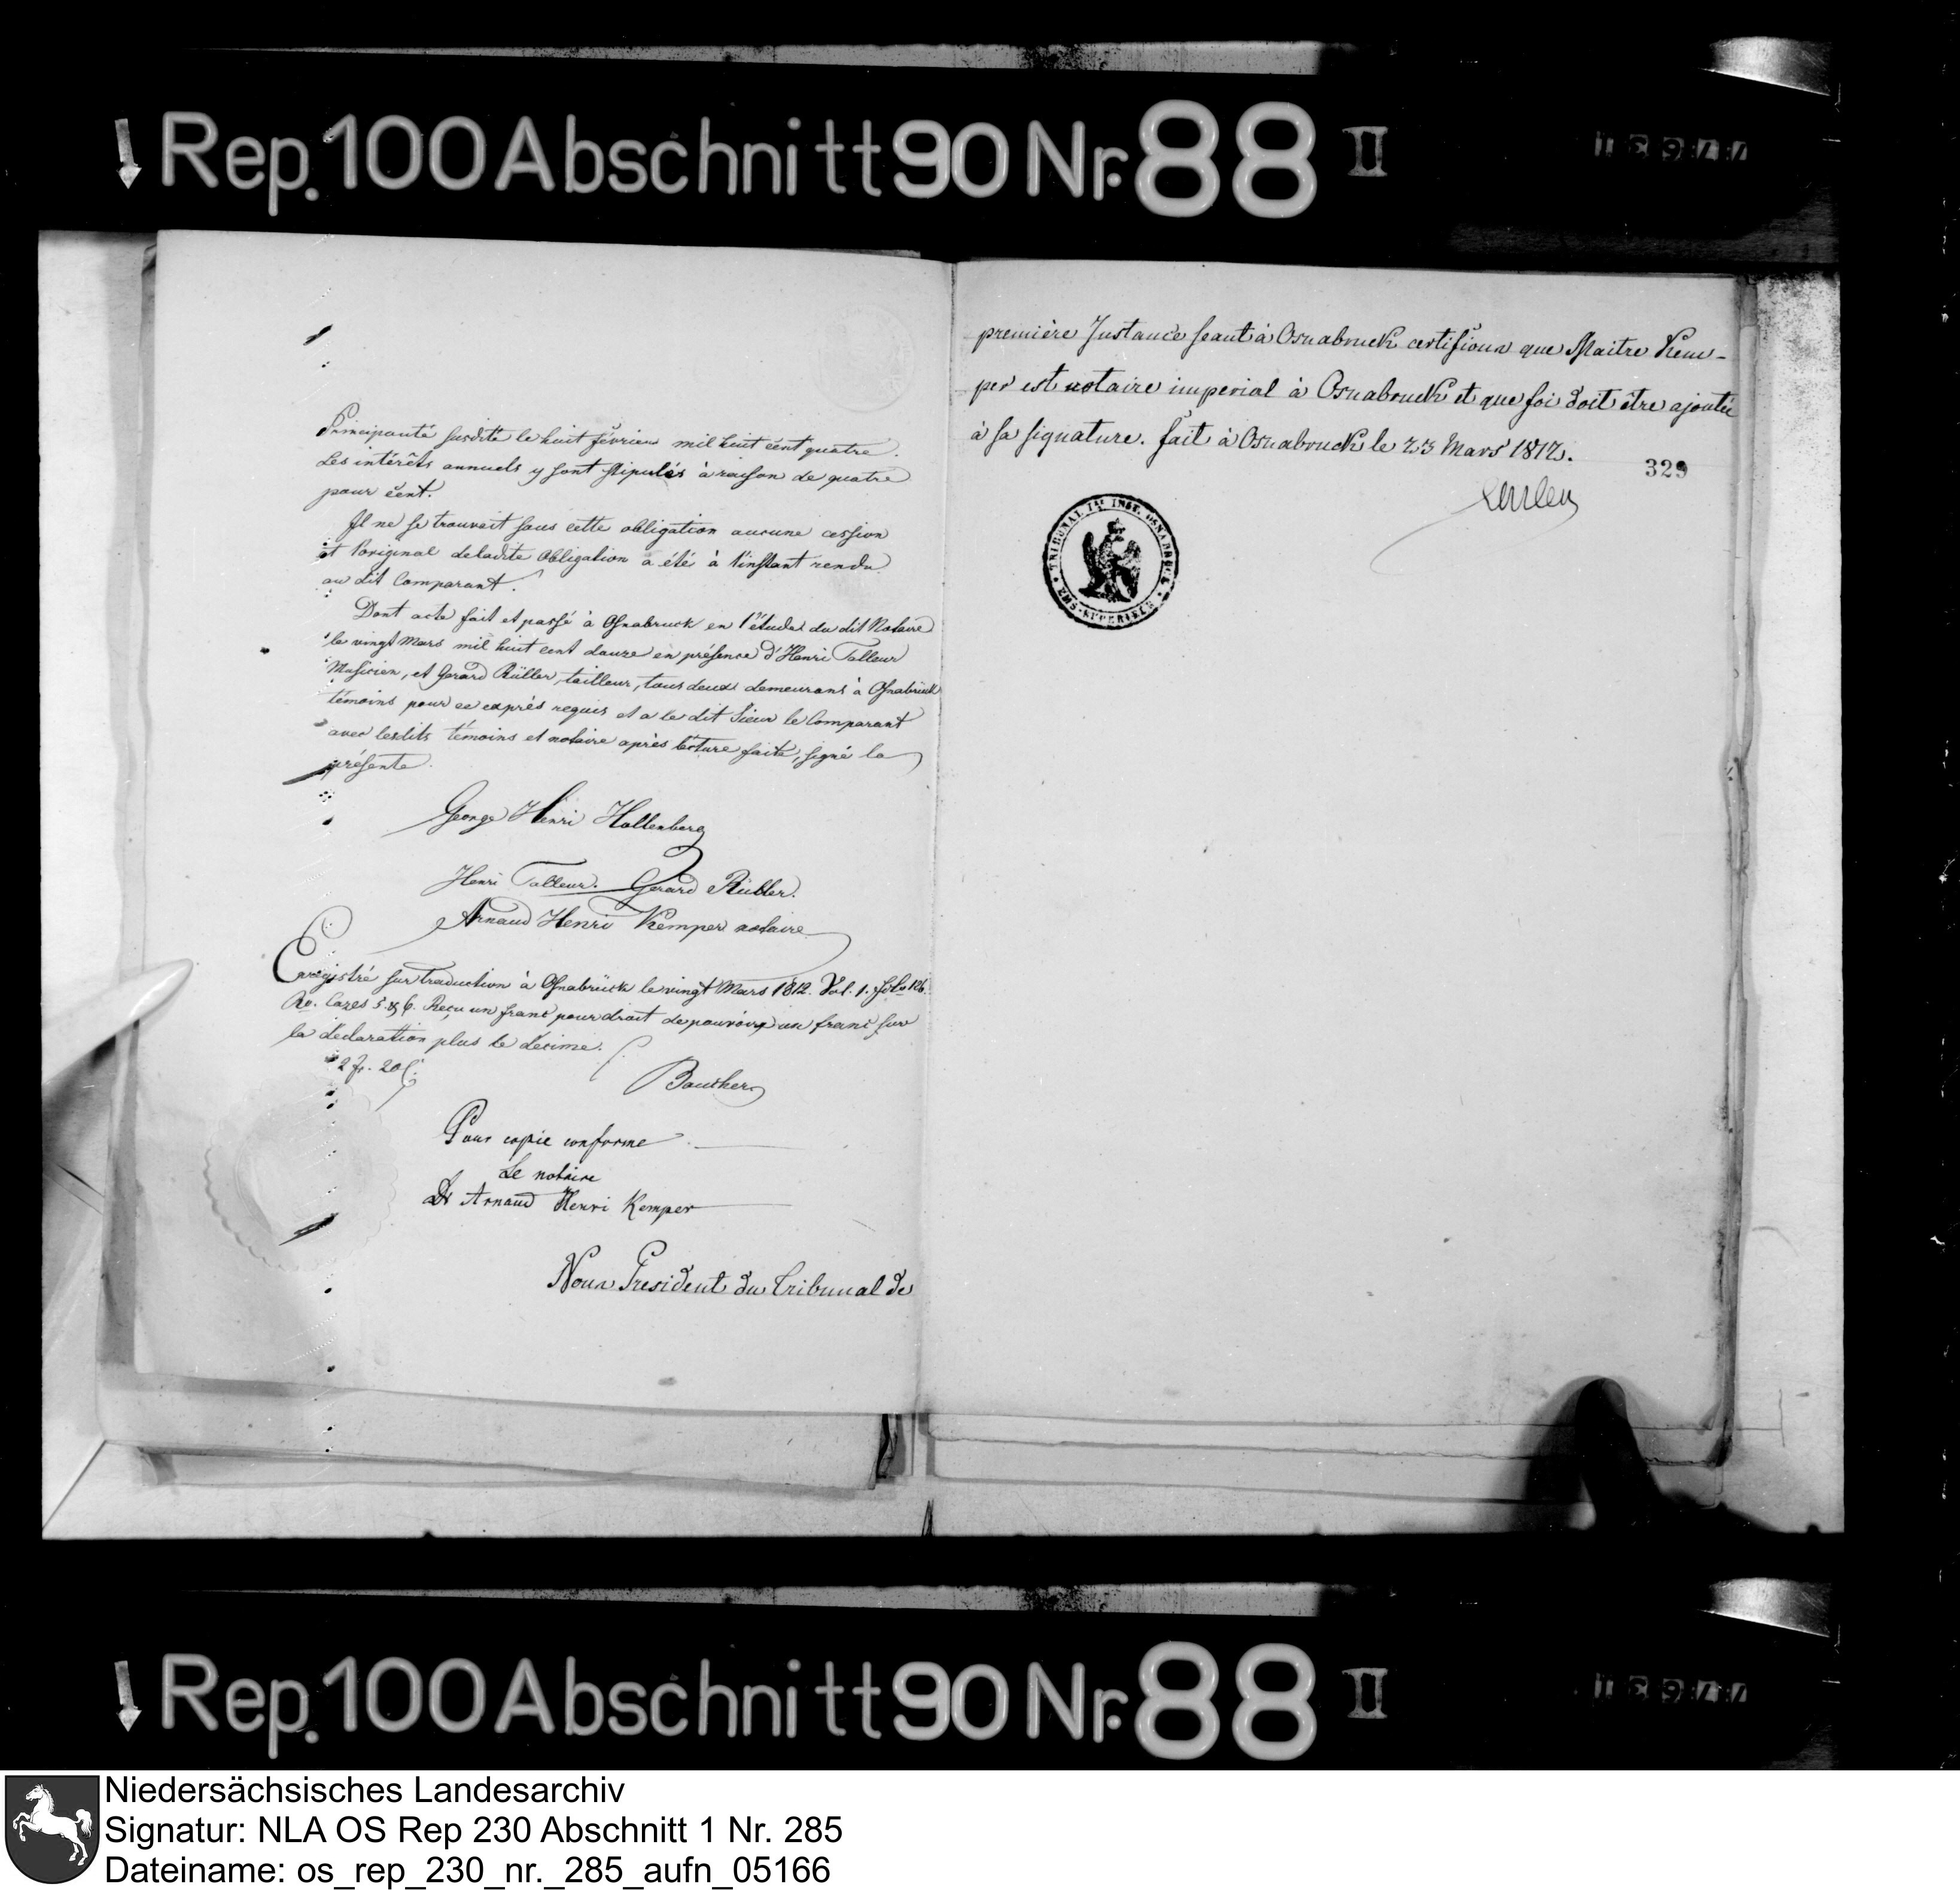 Rep. 100 Abschnitt 90 Nr. 88 II
Principauté susdite le huit février mil huit cent quatre.
Les intérêts annuels y sont stipulés à raison de quatre
pour cent.
Il ne se trouvait sous cette obligation aucune cession
et l'original de ladite Obligation a été à l'instant rendu
au dit Comparant.
Dont acte fait et passé à Osnabruck en l'étude du dit Notaire
le vingt Mars mil huit cent douze en présence d'Henri Talleur
Musicien, et Gerard Rüller, tailleur, tous deux demeurans à Osnabrück
témoins pour ce exprès requis et a le dit Sieur le Comparant
avec lesdits témoins et notaire après lecture faite, signé la
présente.
George Henri Hollenberg
Henri Talleur. Gerard Rüller.
Arnaud Henri Kemper notaire
Enregistré sur traduction à Osnabrück le vingt Mars 1812. Vol. 1. folo 126.
Ro. Cazes 5 & 6. Reçu un franc pour droit de pouvoir, un franc sur
la déclaration plus le décime.
2 fr. 20 C.
Bouscher
Pour copie conforme
Le notaire
Dr Arnaud Henri Kemper
Nous President du Tribunal de
première Instance seant à Osnabruck certifions que Maitre Kem-
per est notaire imperial à Osnabruck et que foi doit être ajoutée
à sa signature. fait à Osnabruck le 23 Mars 1812.
329
TRIBUNAL 1RE INST. OSNABRUCK
EMS-SUPERIEUR
Rep. 100 Abschnitt 90 Nr. 88 II
Niedersächsisches Landesarchiv
Signatur: NLA OS Rep 230 Abschnitt 1 Nr. 285
Dateiname: os_rep_230_nr._285_aufn_05166